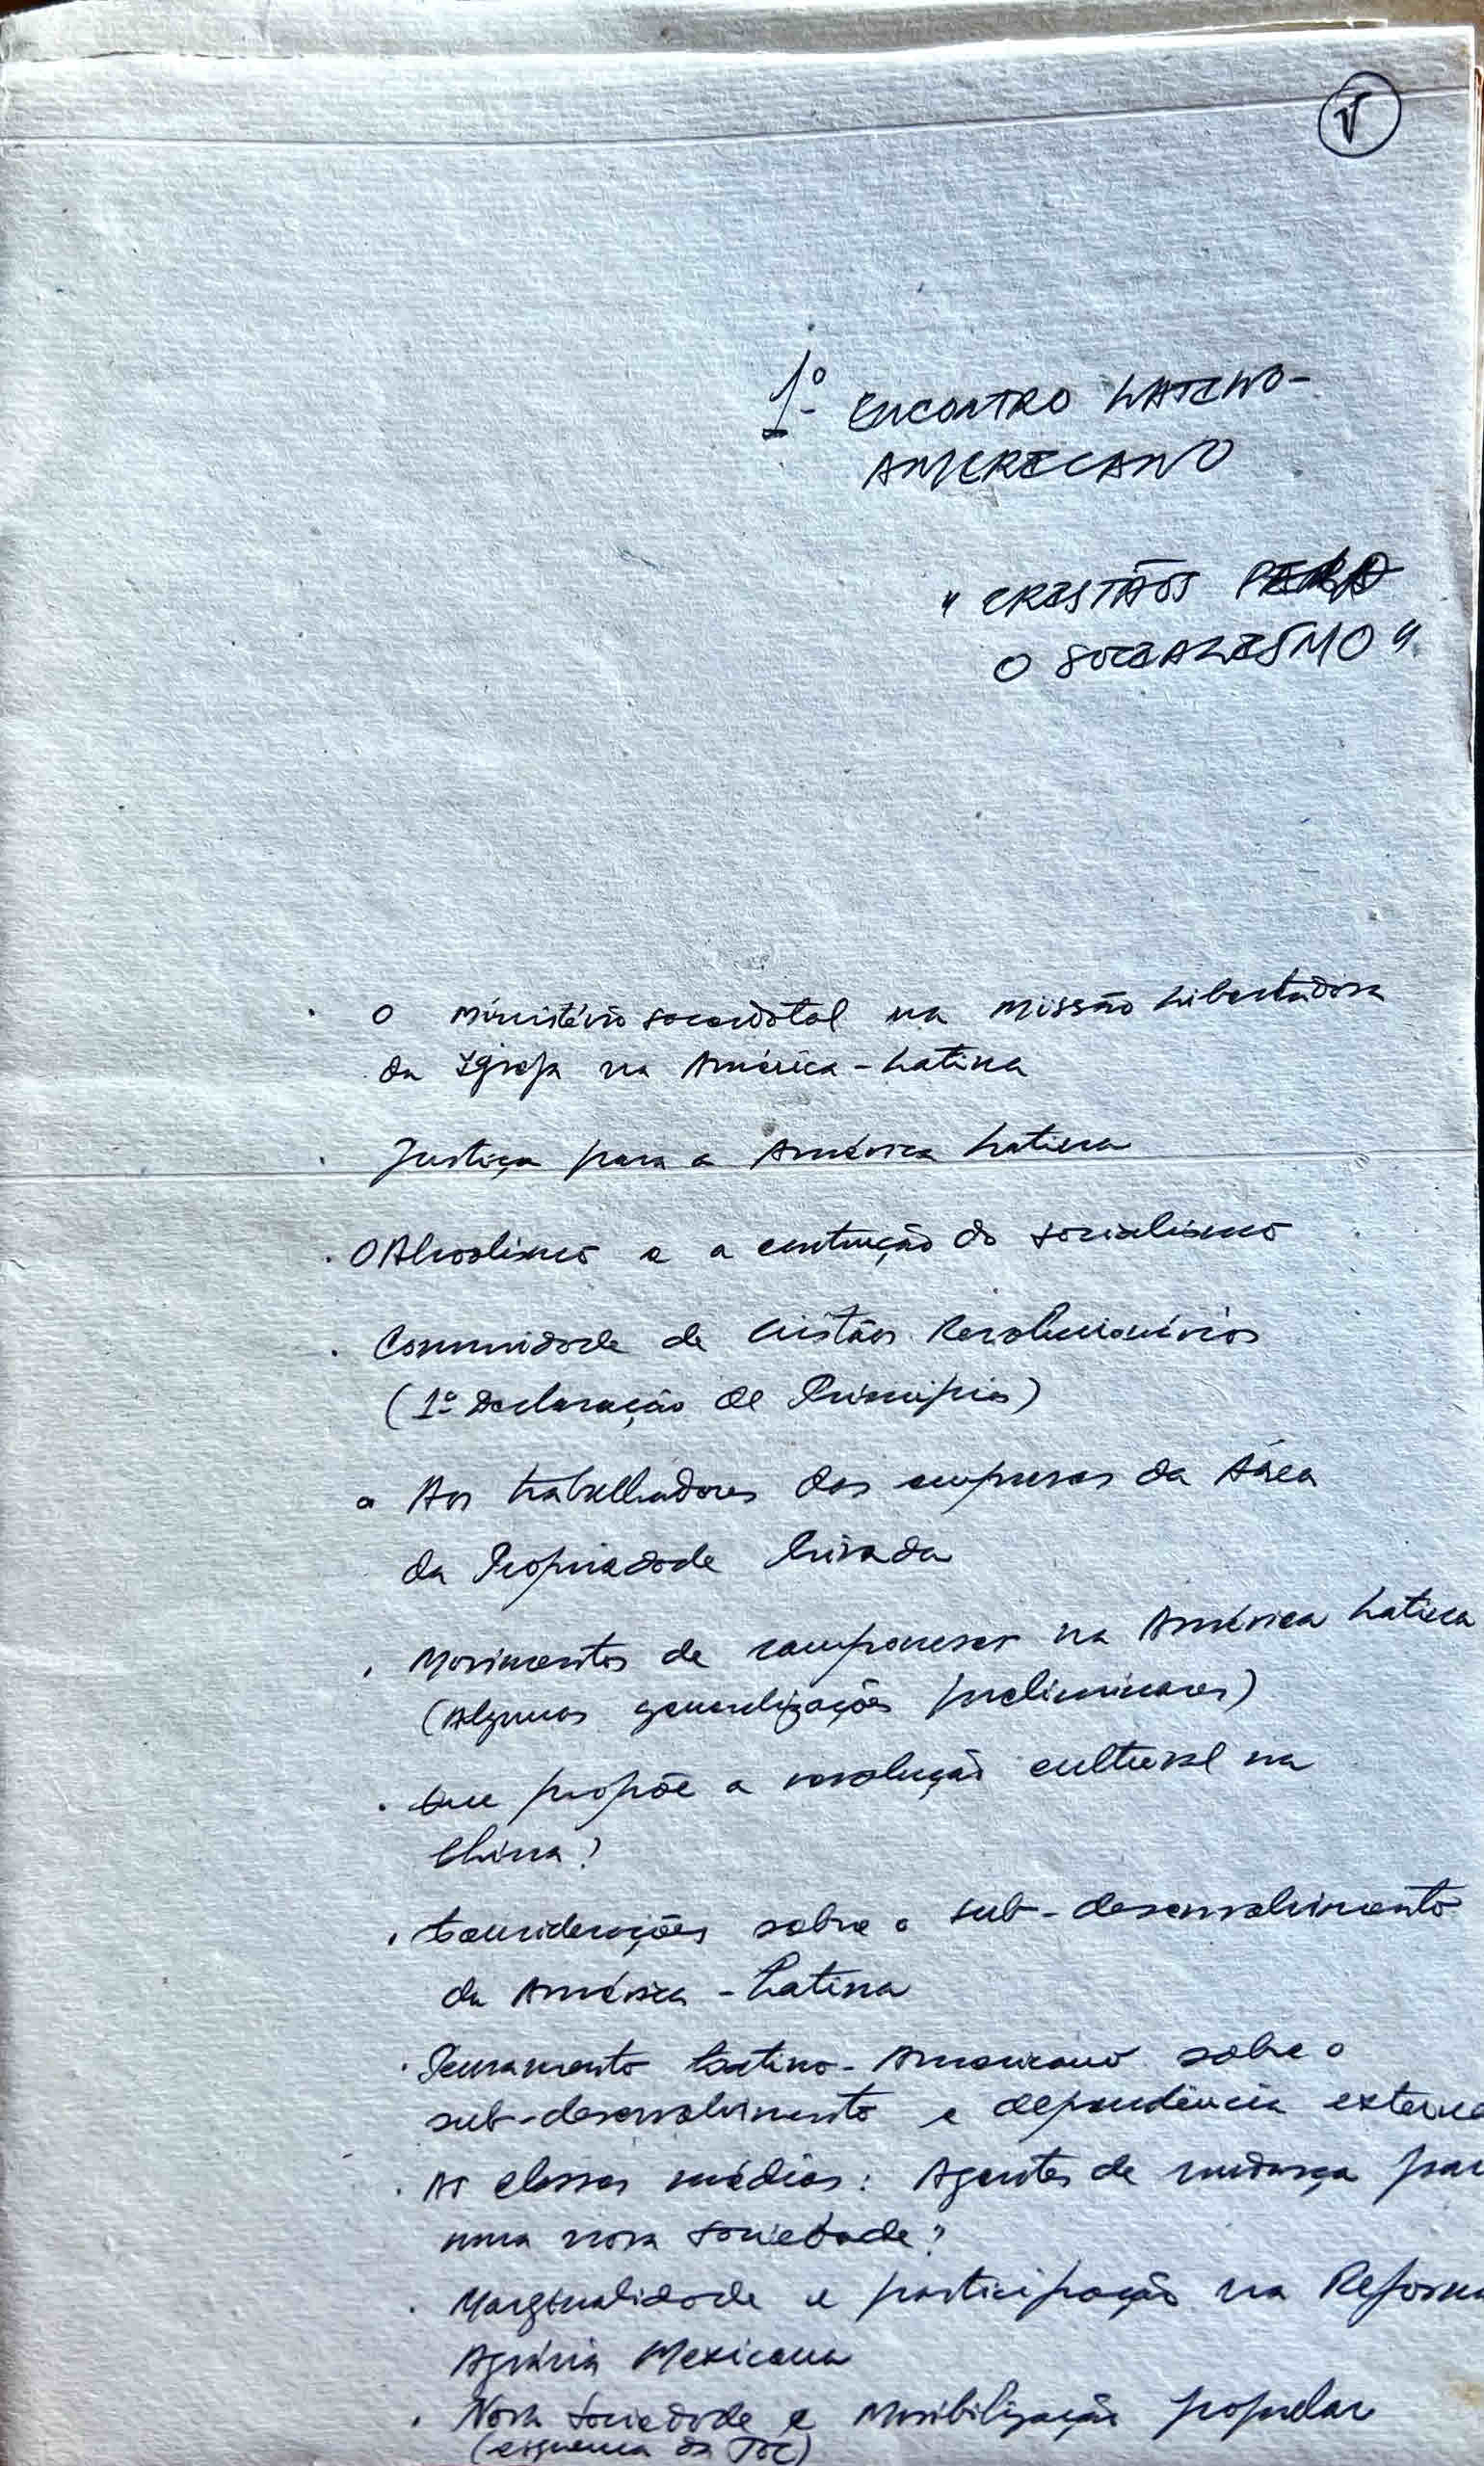 V
1º ENCONTRO LATINO-
AMERICANO
"CRISTÃOS PARA
O SOCIALISMO"
. O Ministério sacerdotal na Missão Libertadora
da Igreja na América-Latina
. Justiça para a América Latina
. O Alcoolismo e a contrução do socialismo
. Comunidade de Cristãos Revolucionários
(1º Declaração de Princípios)
. Aos trabalhadores das empresas da Área
da Propriedade Privada
. Movimentos de camponeses na América Latina
(Algumas generalizações preliminares)
. Que propõe a revolução cultural na
China?
. Considerações sobre o sub-desenvolvimento
da América-Latina
. Pensamento Latino-Americano sobre o
sub-desenvolvimento e dependência externa
. As classes médias: Agentes de mudança par
uma nova sociedade?
. Marginalidade e participação na Reforma
Agrária Mexicana
. Nova Sociedade e Mobilização popular
(esquema da TOC)